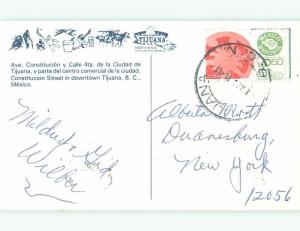 TIJUANA
Ave. Constitución y Calle 4ta. de la Ciudad de
Tijuana, y parte del centro comercial de la ciudad.
Constitucion Street in downtown Tijuana, B. C.,
México.
Alberta
Duanesburg,
New York
12056
Mildred &
Wilber